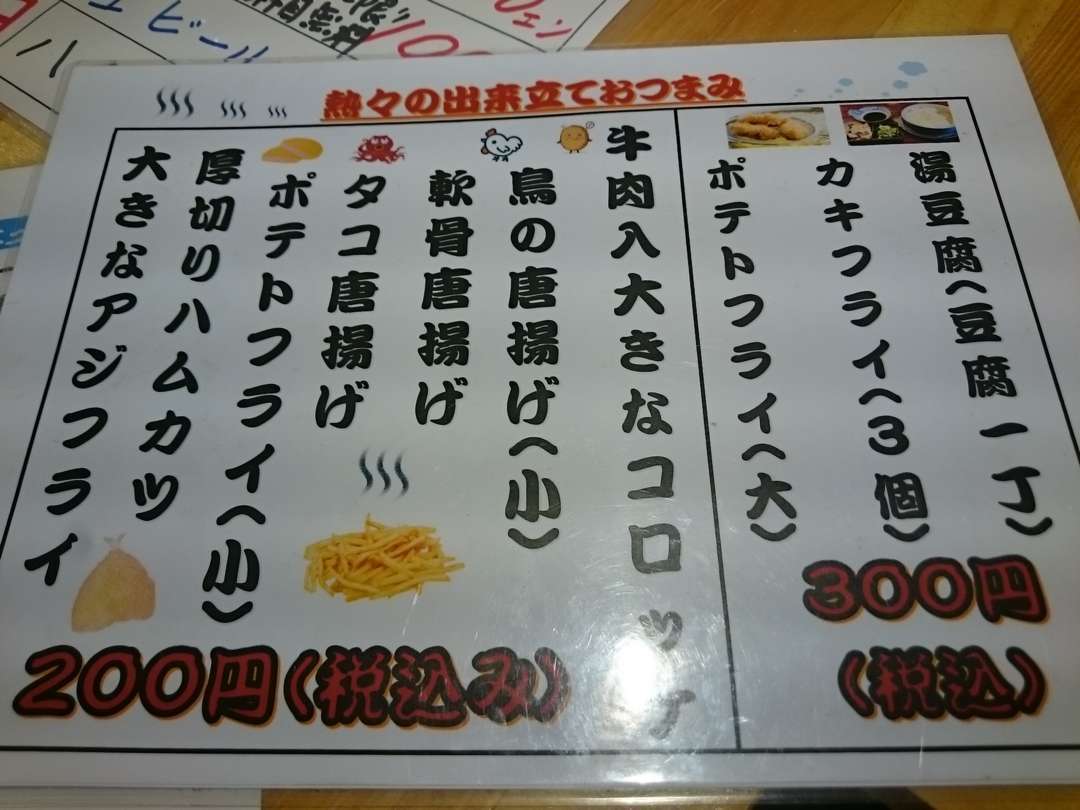 熱々の出来立ておつまみ
湯豆腐(豆腐一丁)
カキフライ(3個)
ポテトフライ(大)
300円
(税込)
牛肉入大きなコロッケ
鳥の唐揚げ(小)
軟骨唐揚げ
タコ唐揚げ
ポテトフライ(小)
厚切りハムカツ
大きなアジフライ
200円(税込み)